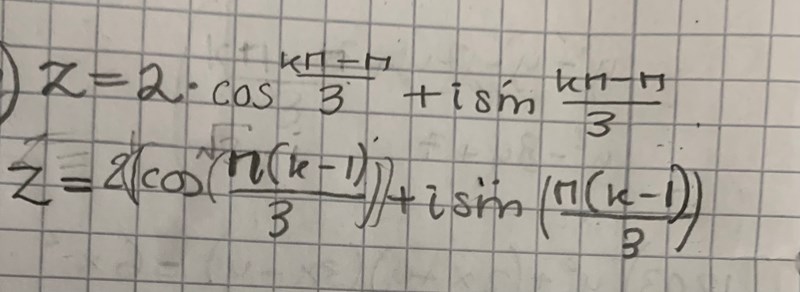 ) z = 2 · cos (kπ-π)/3 + i sin (kπ-π)/3
z = 2(cos(π(k-1)/3)) + i sin (π(k-1)/3)